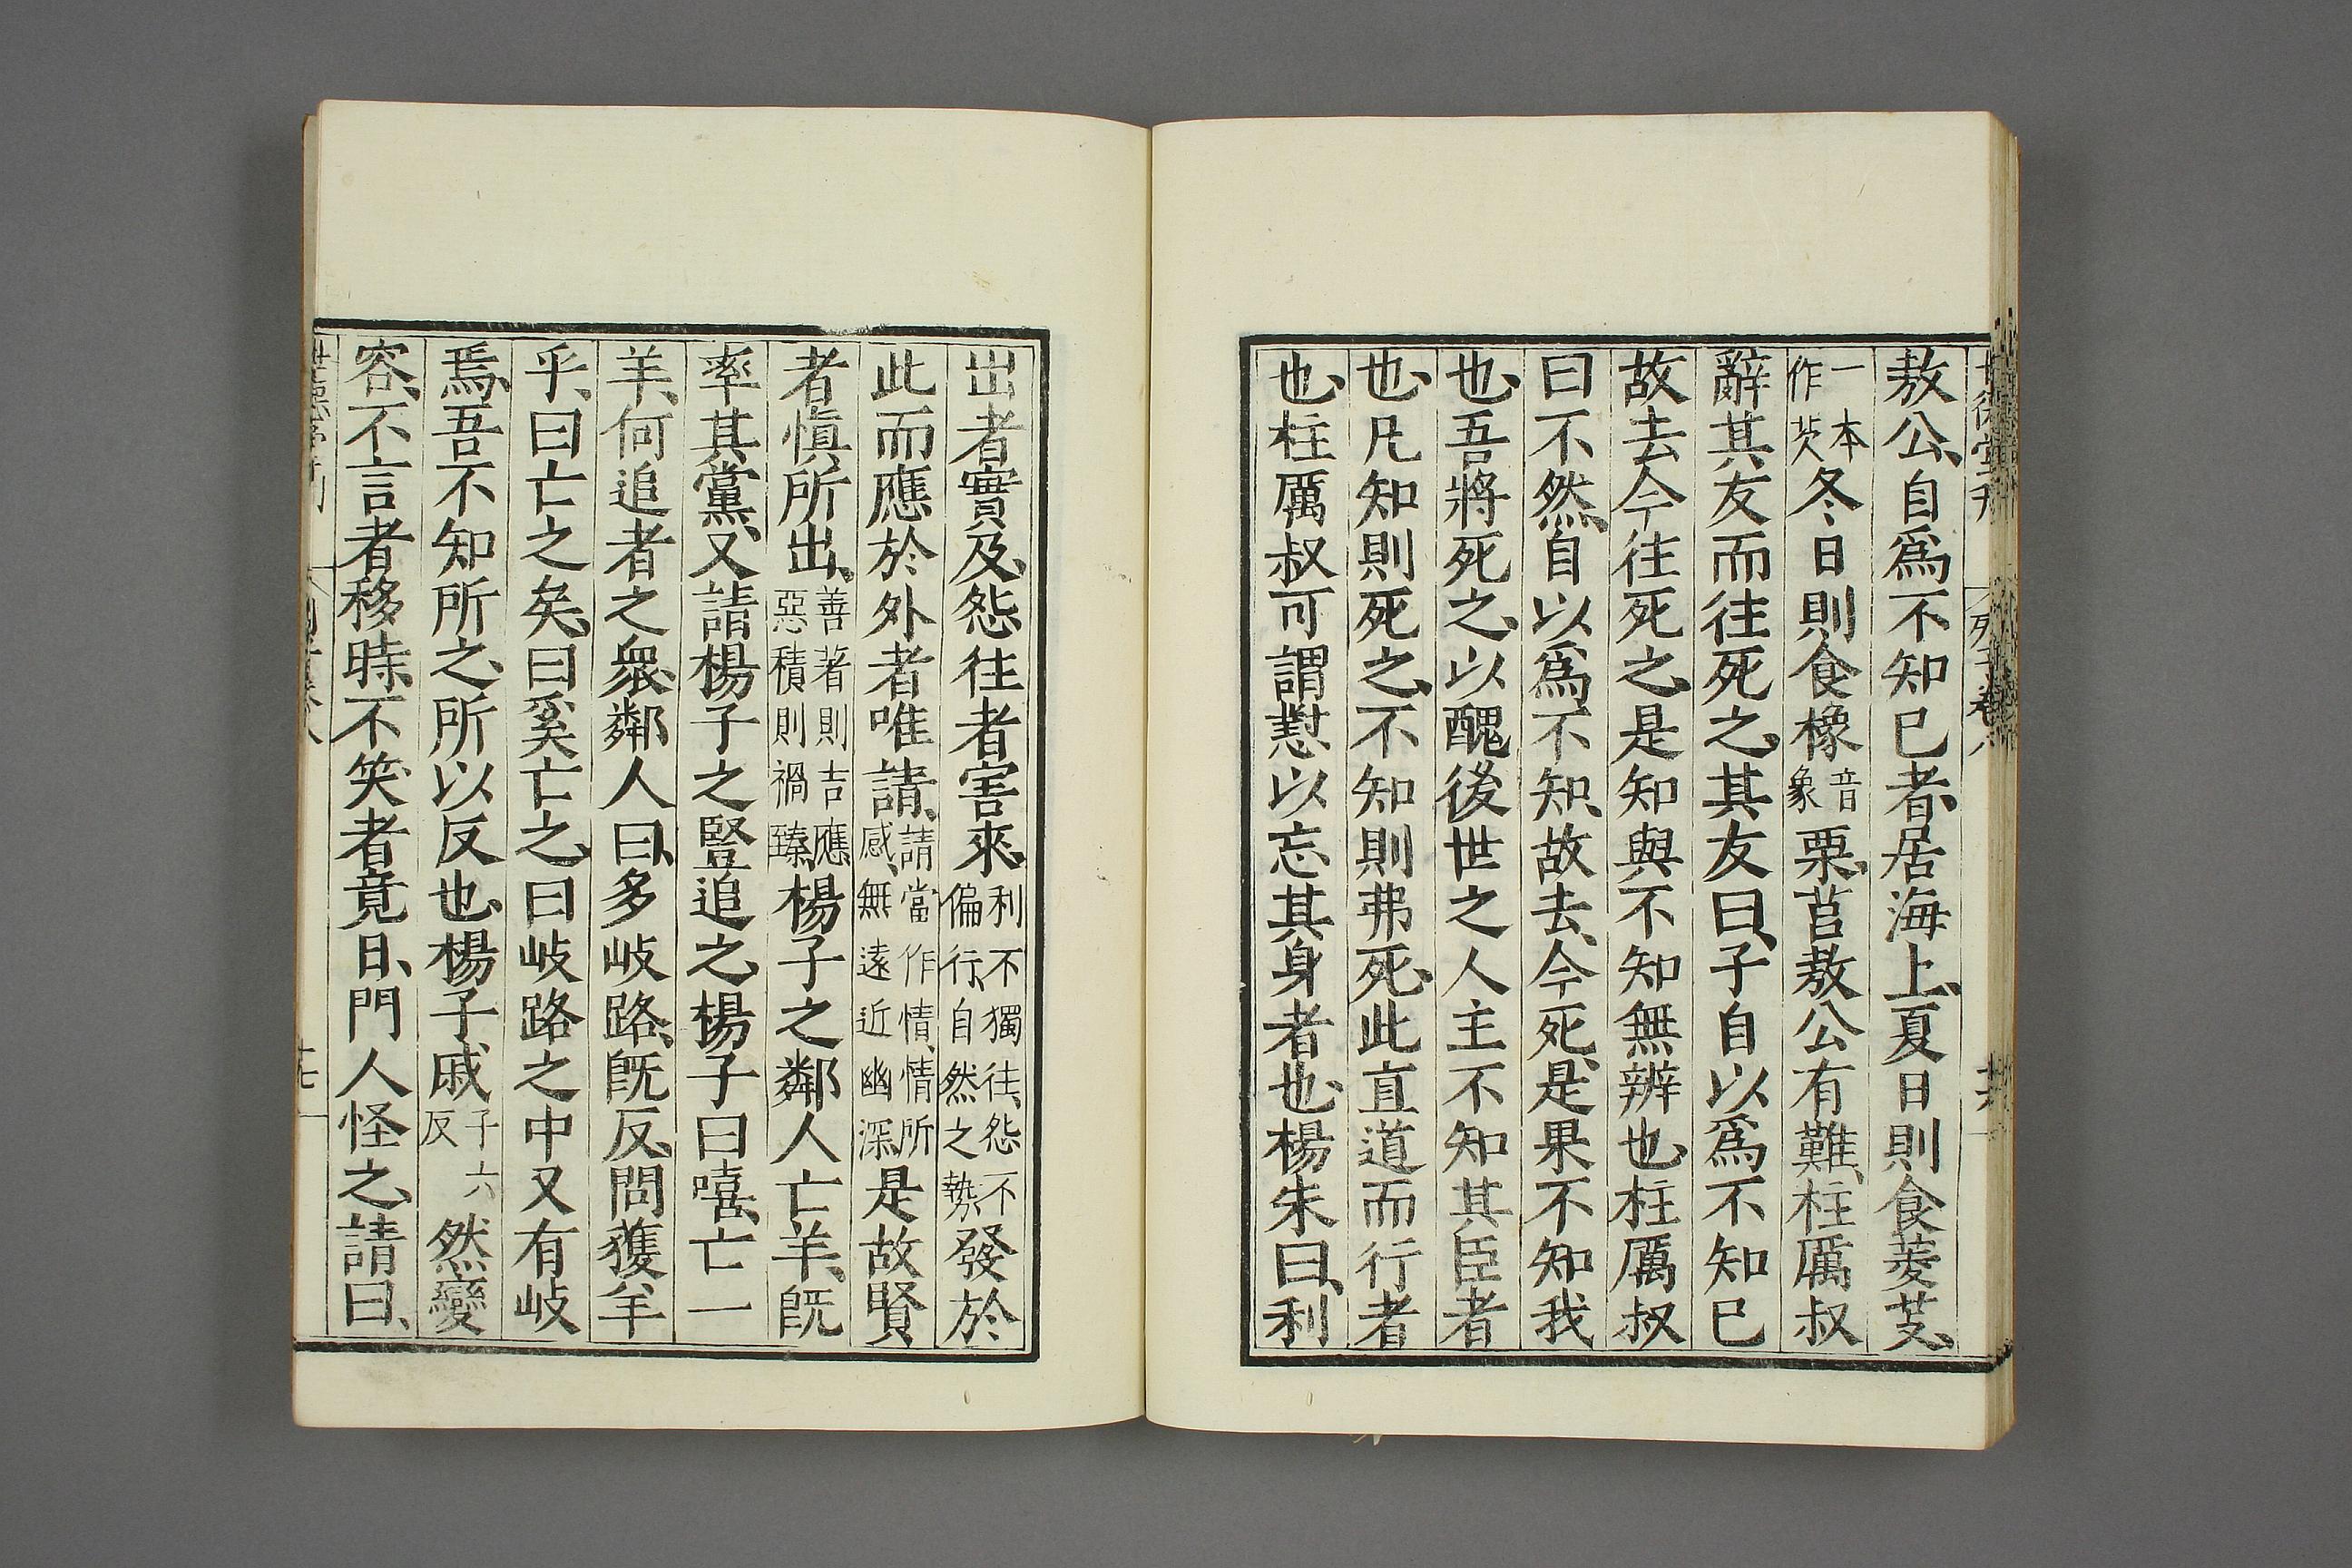 敖公、自爲不知已者、居海上、夏日則食菱芰、
一本作芡冬日則食橡音象栗、莒敖公有難、柱厲叔
辭其友而往死之、其友曰、子自以爲不知已
故去今往死之、是知與不知無辨也、柱厲叔
曰不然、自以爲不知、故去、今死、是果不知我
也、吾將死之、以醜後世之人主不知其臣者
也、凡知則死之、不知則弗死、此直道而行者
也、柱厲叔可謂懟以忘其身者也、楊朱曰、利
出者實及、怨往者害來、利不獨往、怨不偏行、自然之勢、發於
此而應於外者唯請、請當作情、情所感、無遠近幽深是故賢
者愼所出、善著則吉應惡積則禍臻、楊子之鄰人亡羊、旣
率其黨、又請楊子之豎追之、楊子曰嘻、亡一
羊、何追者之衆、鄰人曰、多岐路、旣反、問獲羊
乎、曰亡之矣、曰奚亡之、曰岐路之中又有岐
焉、吾不知所之、所以反也、楊子戚子六反然變
容、不言者移時、不笑者竟日、門人怪之、請曰、